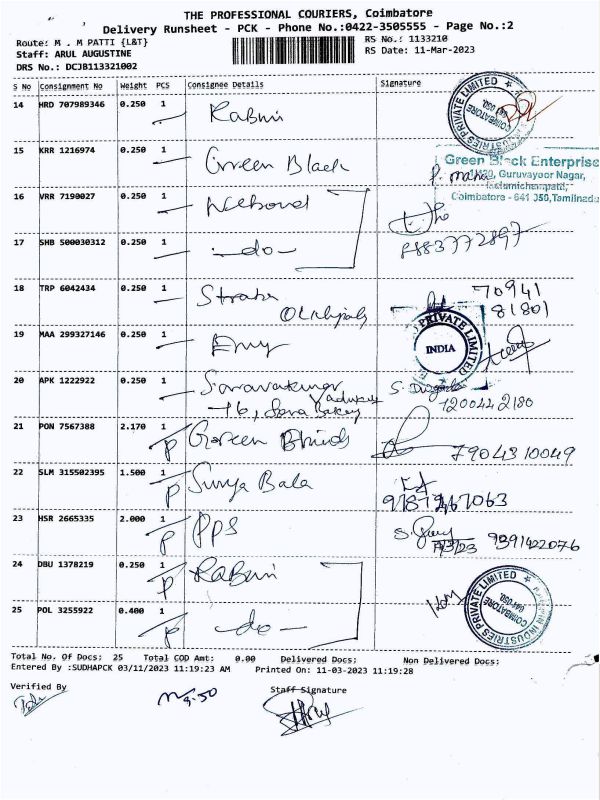 THE PROFESSIONAL COURIERS, Coimbatore
Delivery Runsheet - PCK - Phone No.:0422-3505555 - Page No.:2
Route: M . M PATTI {L&T}
RS No.: 1133210
Staff: ARUL AUGUSTINE
RS Date: 11-Mar-2023
DRS No.: DCJB113321002
S No Consignment No Weight PCS Consignee Details Signature
14 HRD 707989346 0.250 1 Rabwin
PRIVATE LIMITED
COIMBATORE
641 050.
15 KRR 1216974 0.250 1 Green Black
Green Black Enterprise
Guruvayoor Nagar,
Coimbatore - 641 350, Tamilnadu
16 VRR 7190027 0.250 1
17 SHB 500030312 0.250 1 -do-
8883772897
18 TRP 6042434 0.250 1
70941
81801
19 MAA 299327146 0.250 1
PRIVATE LIMITED
INDIA
20 APK 1222922 0.250 1 Saravakumar
16, Bakey
1200442180
21 PON 7567388 2.170 1 P Green Blinds
7904310049
22 SLM 315502395 1.500 1 P Surya Bala
23 HSR 2665335 2.000 1 P PPS
9391422076
24 DBU 1378219 0.250 1 P Rabwin
INDUSTRIES PRIVATE LIMITED
COIMBATORE
641 050.
25 POL 3255922 0.400 1 P -do-
Total No. Of Docs: 25 Total COD Amt: 0.00 Delivered Docs: Non Delivered Docs:
Entered By :SUDHAPCK 03/11/2023 11:19:23 AM Printed On: 11-03-2023 11:19:28
Verified By
Staff Signature